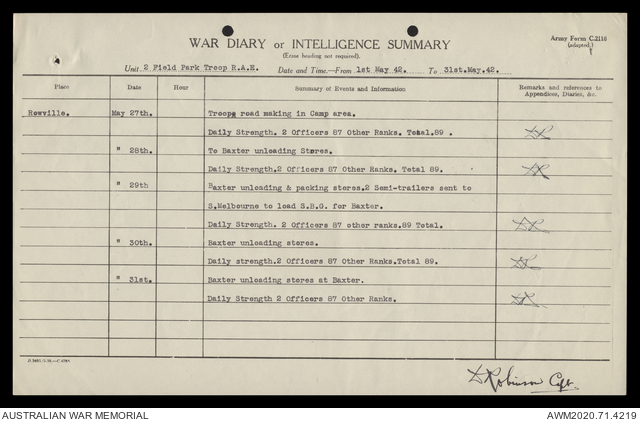 Army Form C.2118
(adapted.)
WAR DIARY or INTELLIGENCE SUMMARY
(Erase heading not required).
Unit 2 Field Park Troop R.A.E. Date and Time.—From 1st May 42. To 31st.May.42.
Place Date Hour Summary of Events and Information Remarks and references to Appendices, Diaries, &c.
Rowville. May 27th. Troops road making in Camp area.
Daily Strength. 2 Officers 87 Other Ranks. Total.89 .
" 28th. To Baxter unloading Stores.
Daily Strength. 2 Officers 87 Other Ranks. Total 89.
" 29th Baxter unloading & packing stores.2 Semi-trailers sent to
S.Melbourne to load S.B.G. for Baxter.
Daily Strength. 2 Officers 87 other ranks.89 Total.
" 30th. Baxter unloading stores.
Daily strength.2 Officers 87 Other Ranks.Total 89.
" 31st. Baxter unloading stores at Baxter.
Daily Strength 2 Officers 87 Other Ranks.
Robinson Capt.
AUSTRALIAN WAR MEMORIAL AWM2020.71.4219